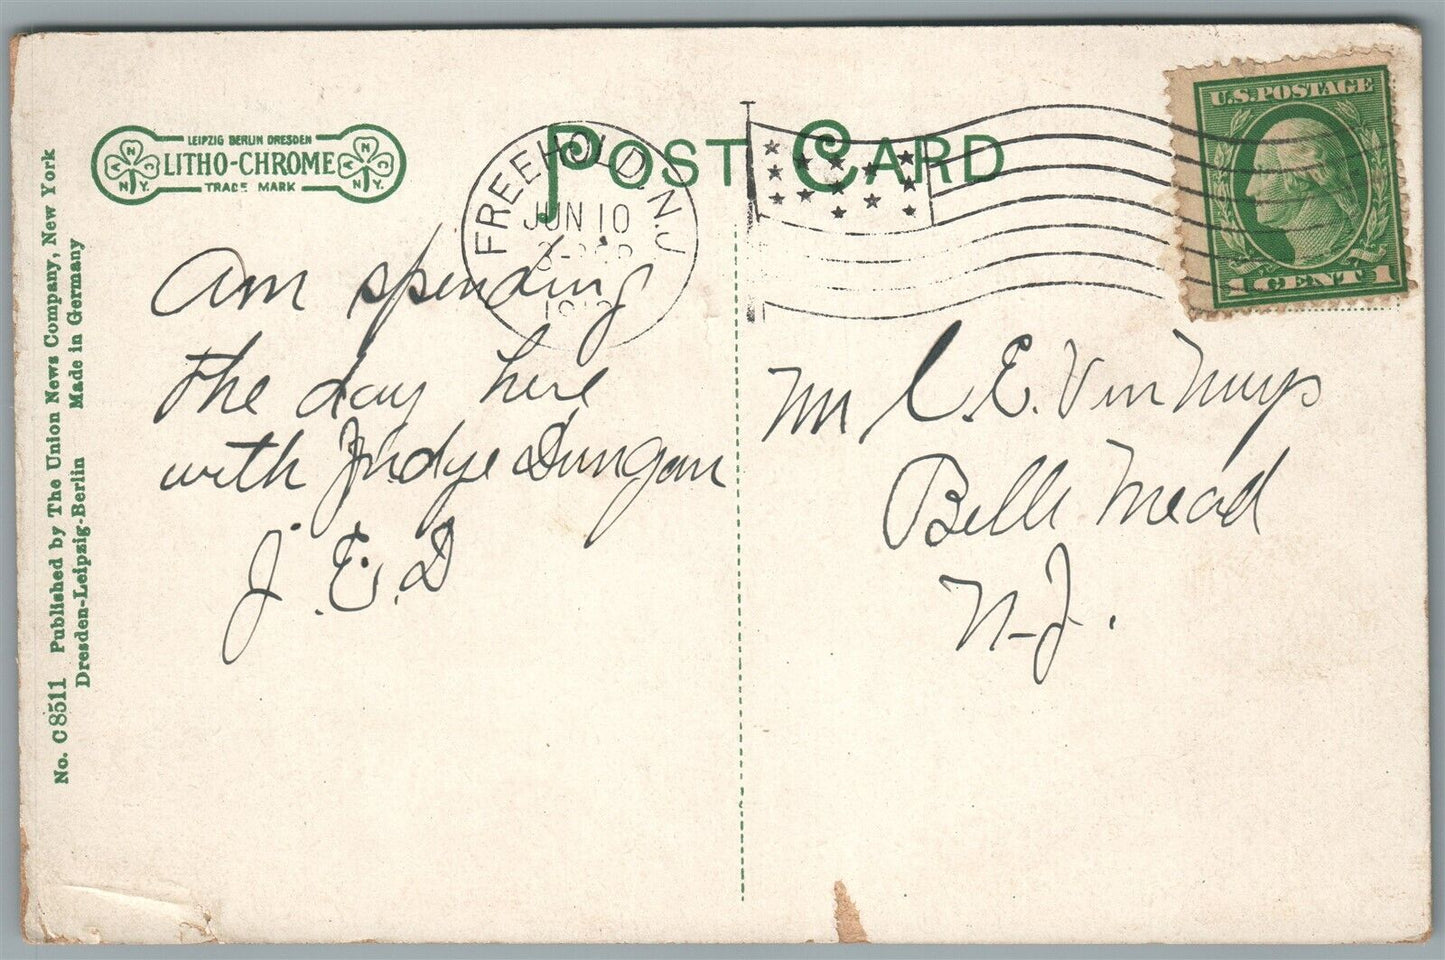 LEIPZIG BERLIN DRESDEN
LITHO-CHROME
TRADE MARK
N N C N.Y.
N N C N.Y.
POST CARD
FREEHOLD. N.J.
JUN 10
U.S. POSTAGE
1 CENT 1
Am spending
the day here
with Judge Dungan
J. E. D
Mr C. E. Van Nuys
Belle Mead
N-J.
No. C8511 Published by The Union News Company, New York
Dresden-Leipzig-Berlin Made in Germany